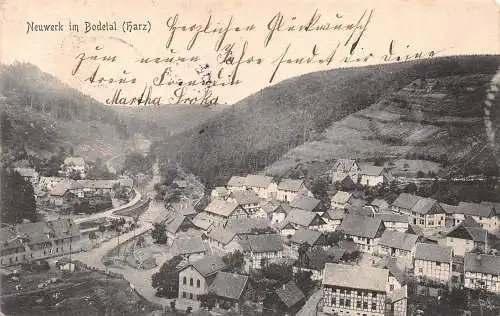 Neuwerk im Bodetal (Harz)
Herzlichen Glückwunsch
zum neuen Jahr sendet dir deine
treue Freundin
Martha